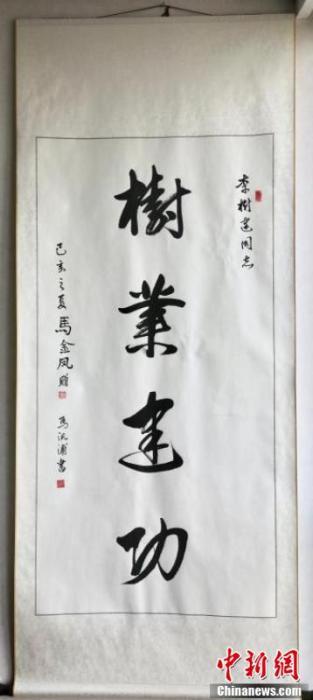 李樹建同志
樹業建功
己亥之夏 馬金凤 贈
馬泛浦書
中新網
www.chinanews.com